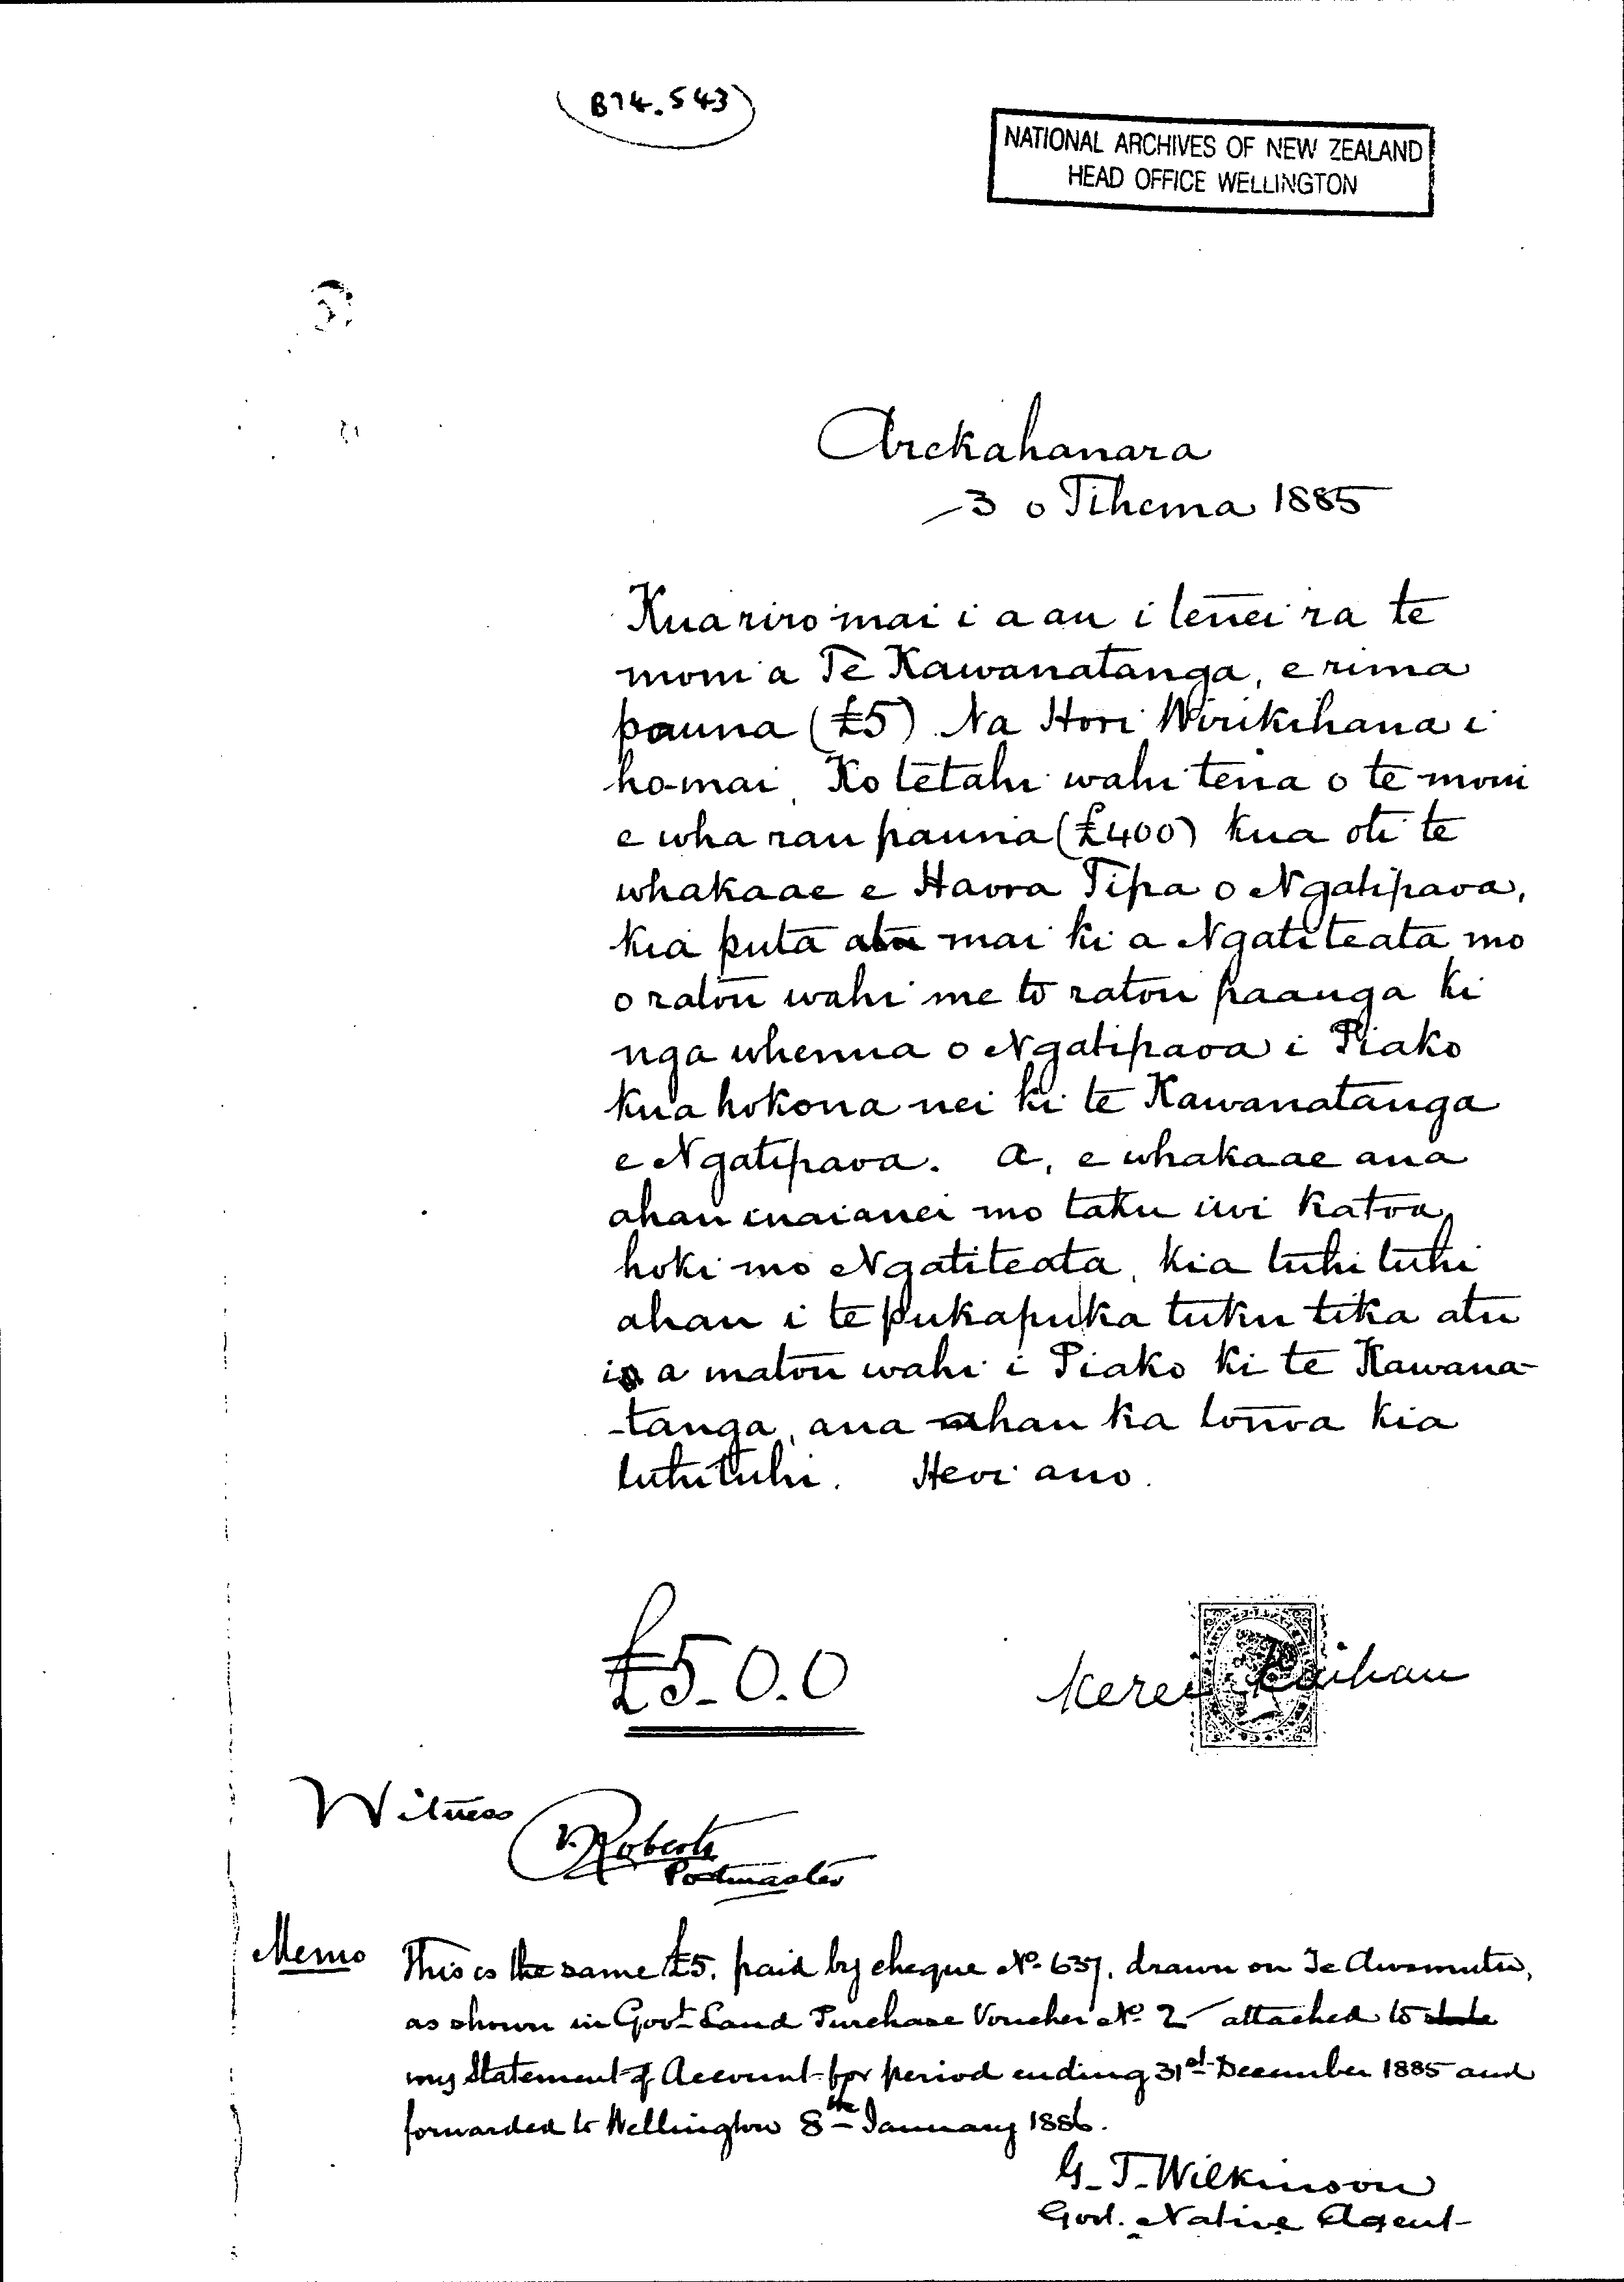 B74.543
NATIONAL ARCHIVES OF NEW ZEALAND
HEAD OFFICE WELLINGTON
Arekahanara
3 o Tihema 1885
Kua riro mai i a au i tenei ra te
moni a Te Kawanatanga, e rima
pauna (£5) Na Hori Wirikihana i
ho-mai, Ko tetahi wahi tena o te moni
e wha rau pauna (£400) kua oti te
whakaae e Haora Tipa o Ngatipaoa,
kia puta atu mai ki a Ngatiteata mo
o ratou wahi me to ratou paanga ki
nga whenua o Ngatipaoa i Piako
kua hokona nei ki te Kawanatanga
e Ngatipaoa. A, e whakaae ana
ahau inaianei mo taku iwi katoa
hoki mo Ngatiteata, kia tuhi tuhi
ahau i te pukapuka tuku tika atu
i a matou wahi i Piako ki te Kawana-
-tanga, ana ahau ka tonoa kia
tuhituhi. Heoi ano.
£5-0.0
Kerei Kaihau
Witness
Roberts
Postmaster
Memo This is the same £5. paid by cheque No. 637. drawn on Te Awamutu,
as shown in Govt. Land Purchase Voucher No. 2 attached to
my Statement of Account for period ending 31st December 1885 and
forwarded to Wellington 8th January 1886.
G. T. Wilkinson
Govt. Native Agent